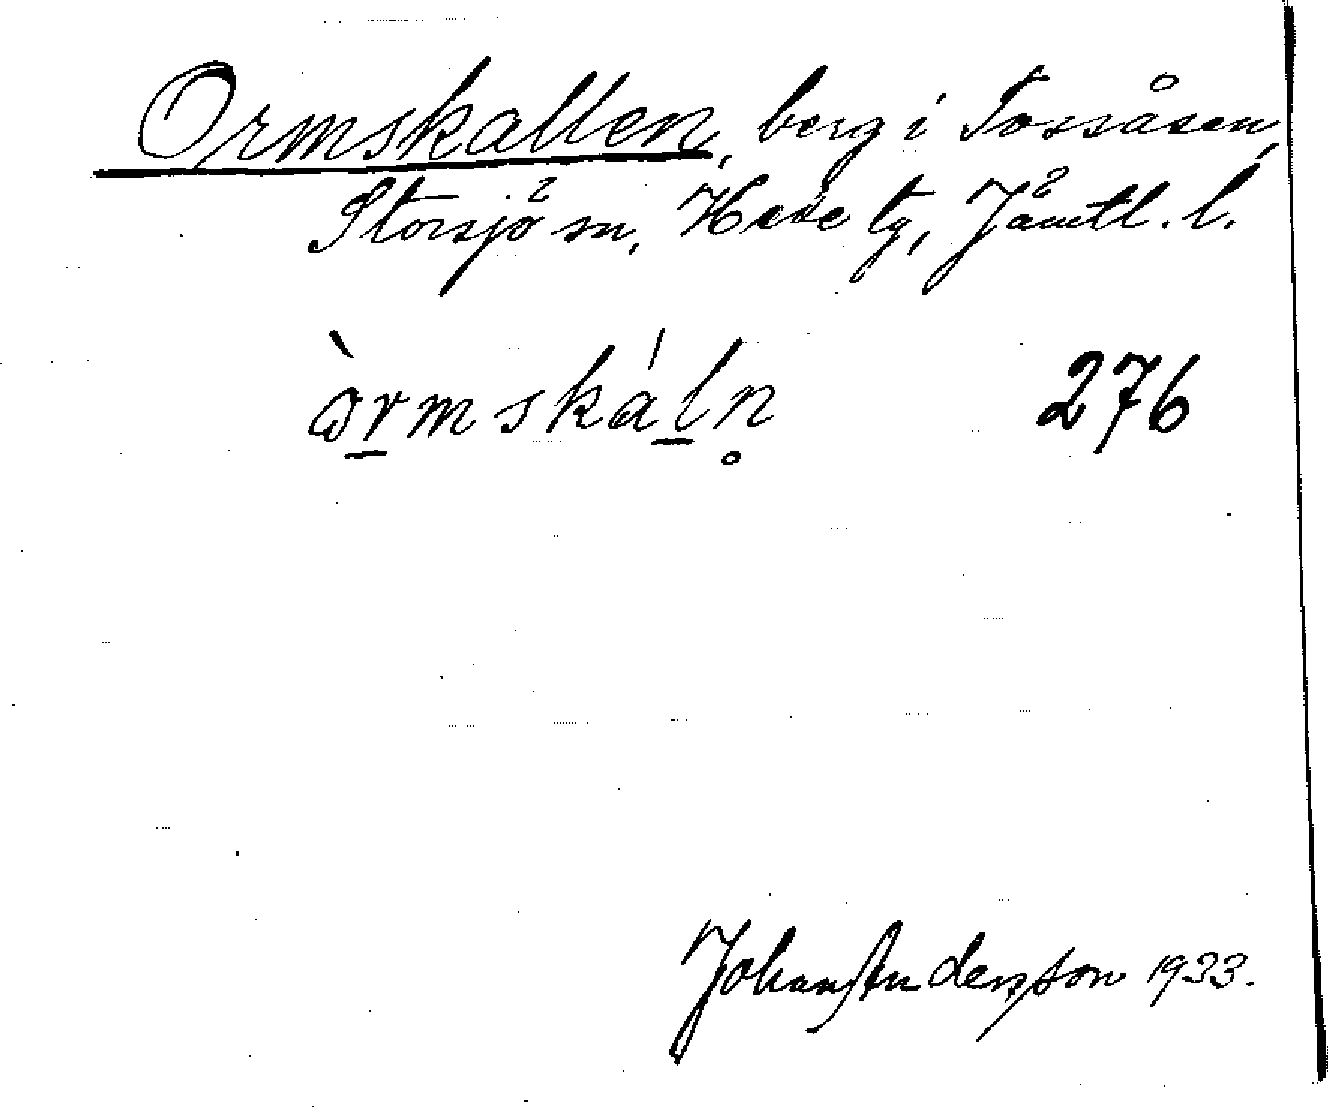 Ormskallen, berg i Tossåsen,
Storsjö sn, Hede tg, Jämtl. l.
òrmskáln̥ 276
Johan Andersson 1933.